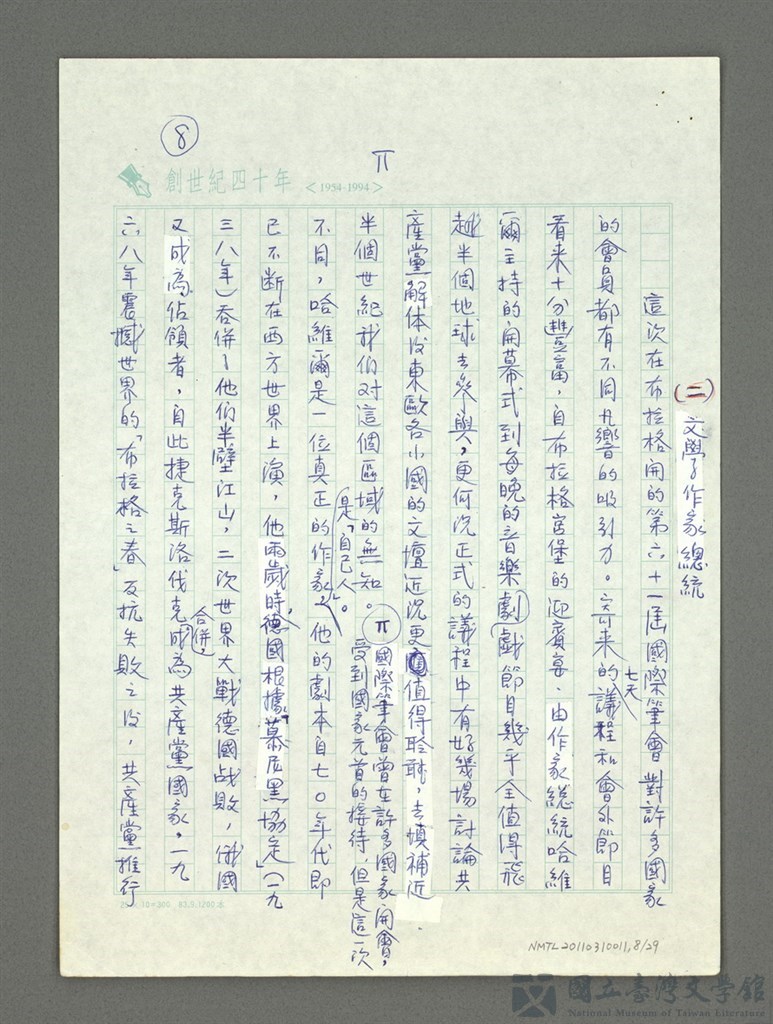 ⑧
π
創世紀四十年 <1954-1994>
(二) 文學作家總統
這次在布拉格開的第六十一屆國際筆會對許多國家
的會員都有不同凡響的吸引力。寄來的七天議程和會外節目
看来十分豐富，自布拉格宮堡的迎賓宴、由作家總統哈維
爾主持的開幕式到每晚的音樂劇戲節目幾乎全值得飛
越半個地球去參與，更何況正式的議程中有好幾場討論共
產黨解体後東歐各小國的文壇近況更值得聆聽，去填補近
半個世紀我们对這個區域的無知。π國際筆會曾在許多國家開會，
受到國家元首的接待，但是這一次
是「自己人」。
不同，哈維爾是一位真正的作家，他的劇本自七〇年代即
已不断在西方世界上演，他兩歲時，德國根據「慕尼黑協定」(一九
三八年)吞併了他们半壁江山，二次世界大戰德國战敗，俄國
又成為佔領者，自此捷克斯洛伐克合併，成為共產黨國家，一九
六八年震撼世界的「布拉格之春」反抗失敗之後，共產黨推行
25×12=300 83.9.1200本
NMTL20110310011,8/29
國立臺灣文學館
National Museum of Taiwan Literature